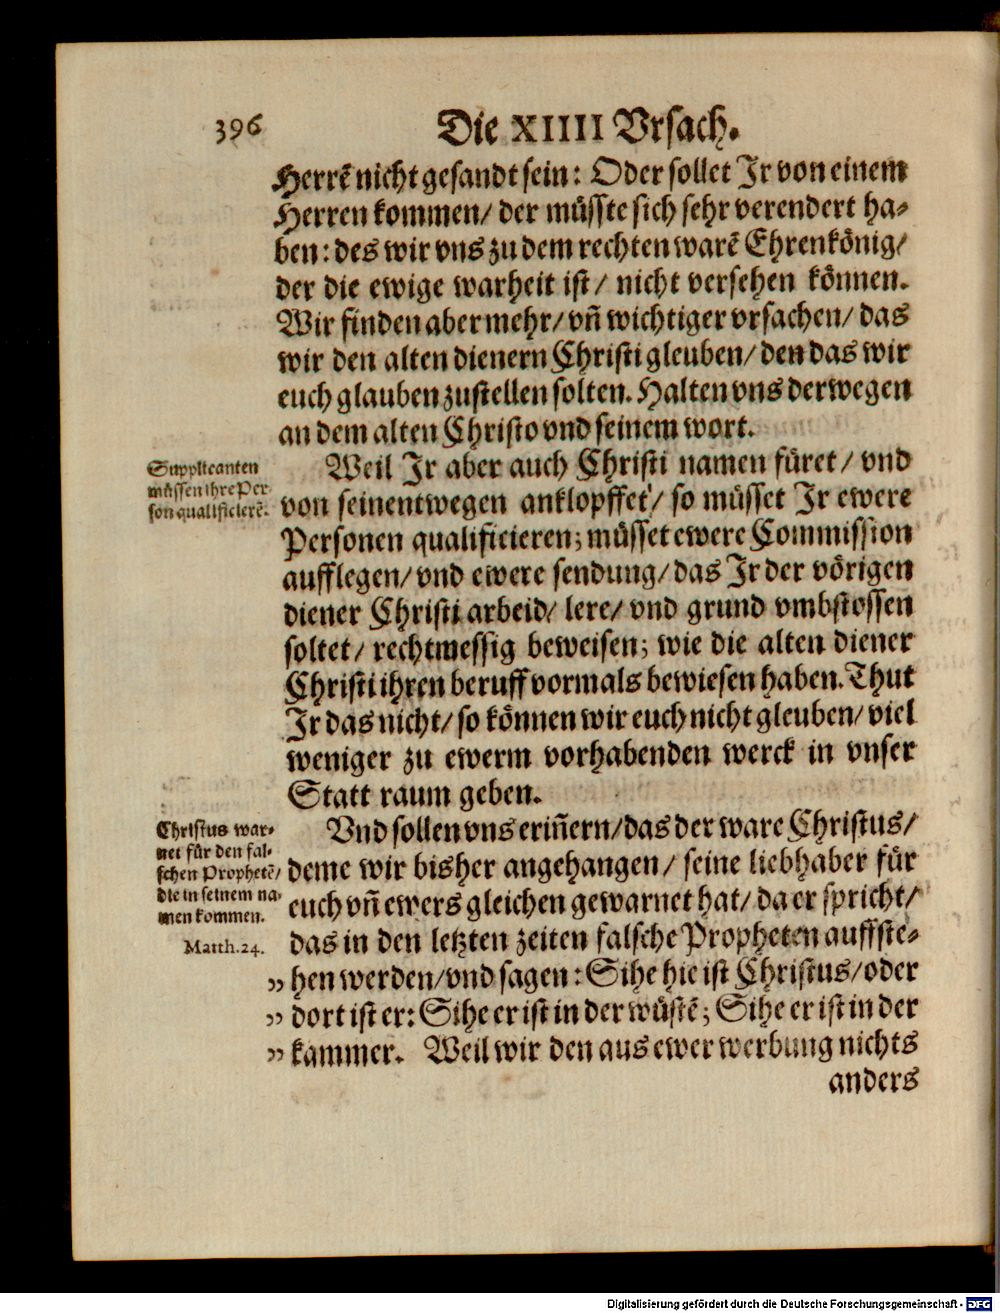 396
Die XIIII Vrsach.
Herrẽ nicht gesandt sein: Oder sollet Jr von einem
Herren kommen/ der müsste sich sehr verendert ha-
ben: des wir vns zu dem rechten warẽ Ehrenkönig/
der die ewige warheit ist/ nicht versehen können.
Wir finden aber mehr/ vñ wichtiger vrsachen/ das
wir den alten dienern Christi gleuben/ den das wir
euch glauben zustellen solten. Halten vns derwegen
an dem alten Christo vnd seinem wort.
Supplicanten
müssen ihre Per
son qualificierẽ.
Weil Jr aber auch Christi namen füret/ vnd
von seinentwegen anklopffet/ so müsset Jr ewere
Personen qualificieren; müsset ewere Commission
aufflegen/ vnd ewere sendung/ das Jr der vörigen
diener Christi arbeid/ lere/ vnd grund vmbstossen
soltet/ rechtmessig beweisen; wie die alten diener
Christi ihren beruff vormals bewiesen haben. Thut
Jr das nicht/ so können wir euch nicht gleuben/ viel
weniger zu ewerm vorhabenden werck in vnser
Statt raum geben.
Christus war-
net für den fal-
schen Prophetẽ/
die in seinem na-
men kommen.
Matth.24.
Vnd sollen vns eriñern/ das der ware Christus/
deme wir bisher angehangen/ seine liebhaber für
euch vñ ewers gleichen gewarnet hat/ da er spricht/
das in den letzten zeiten falsche Propheten auffste-
„ hen werden/ vnd sagen: Sihe hie ist Christus/ oder
„ dort ist er: Sihe er ist in der wüstẽ; Sihe er ist in der
„ kammer. Weil wir den aus ewer werbung nichts
anders
Digitalisierung gefördert durch die Deutsche Forschungsgemeinschaft - DFG